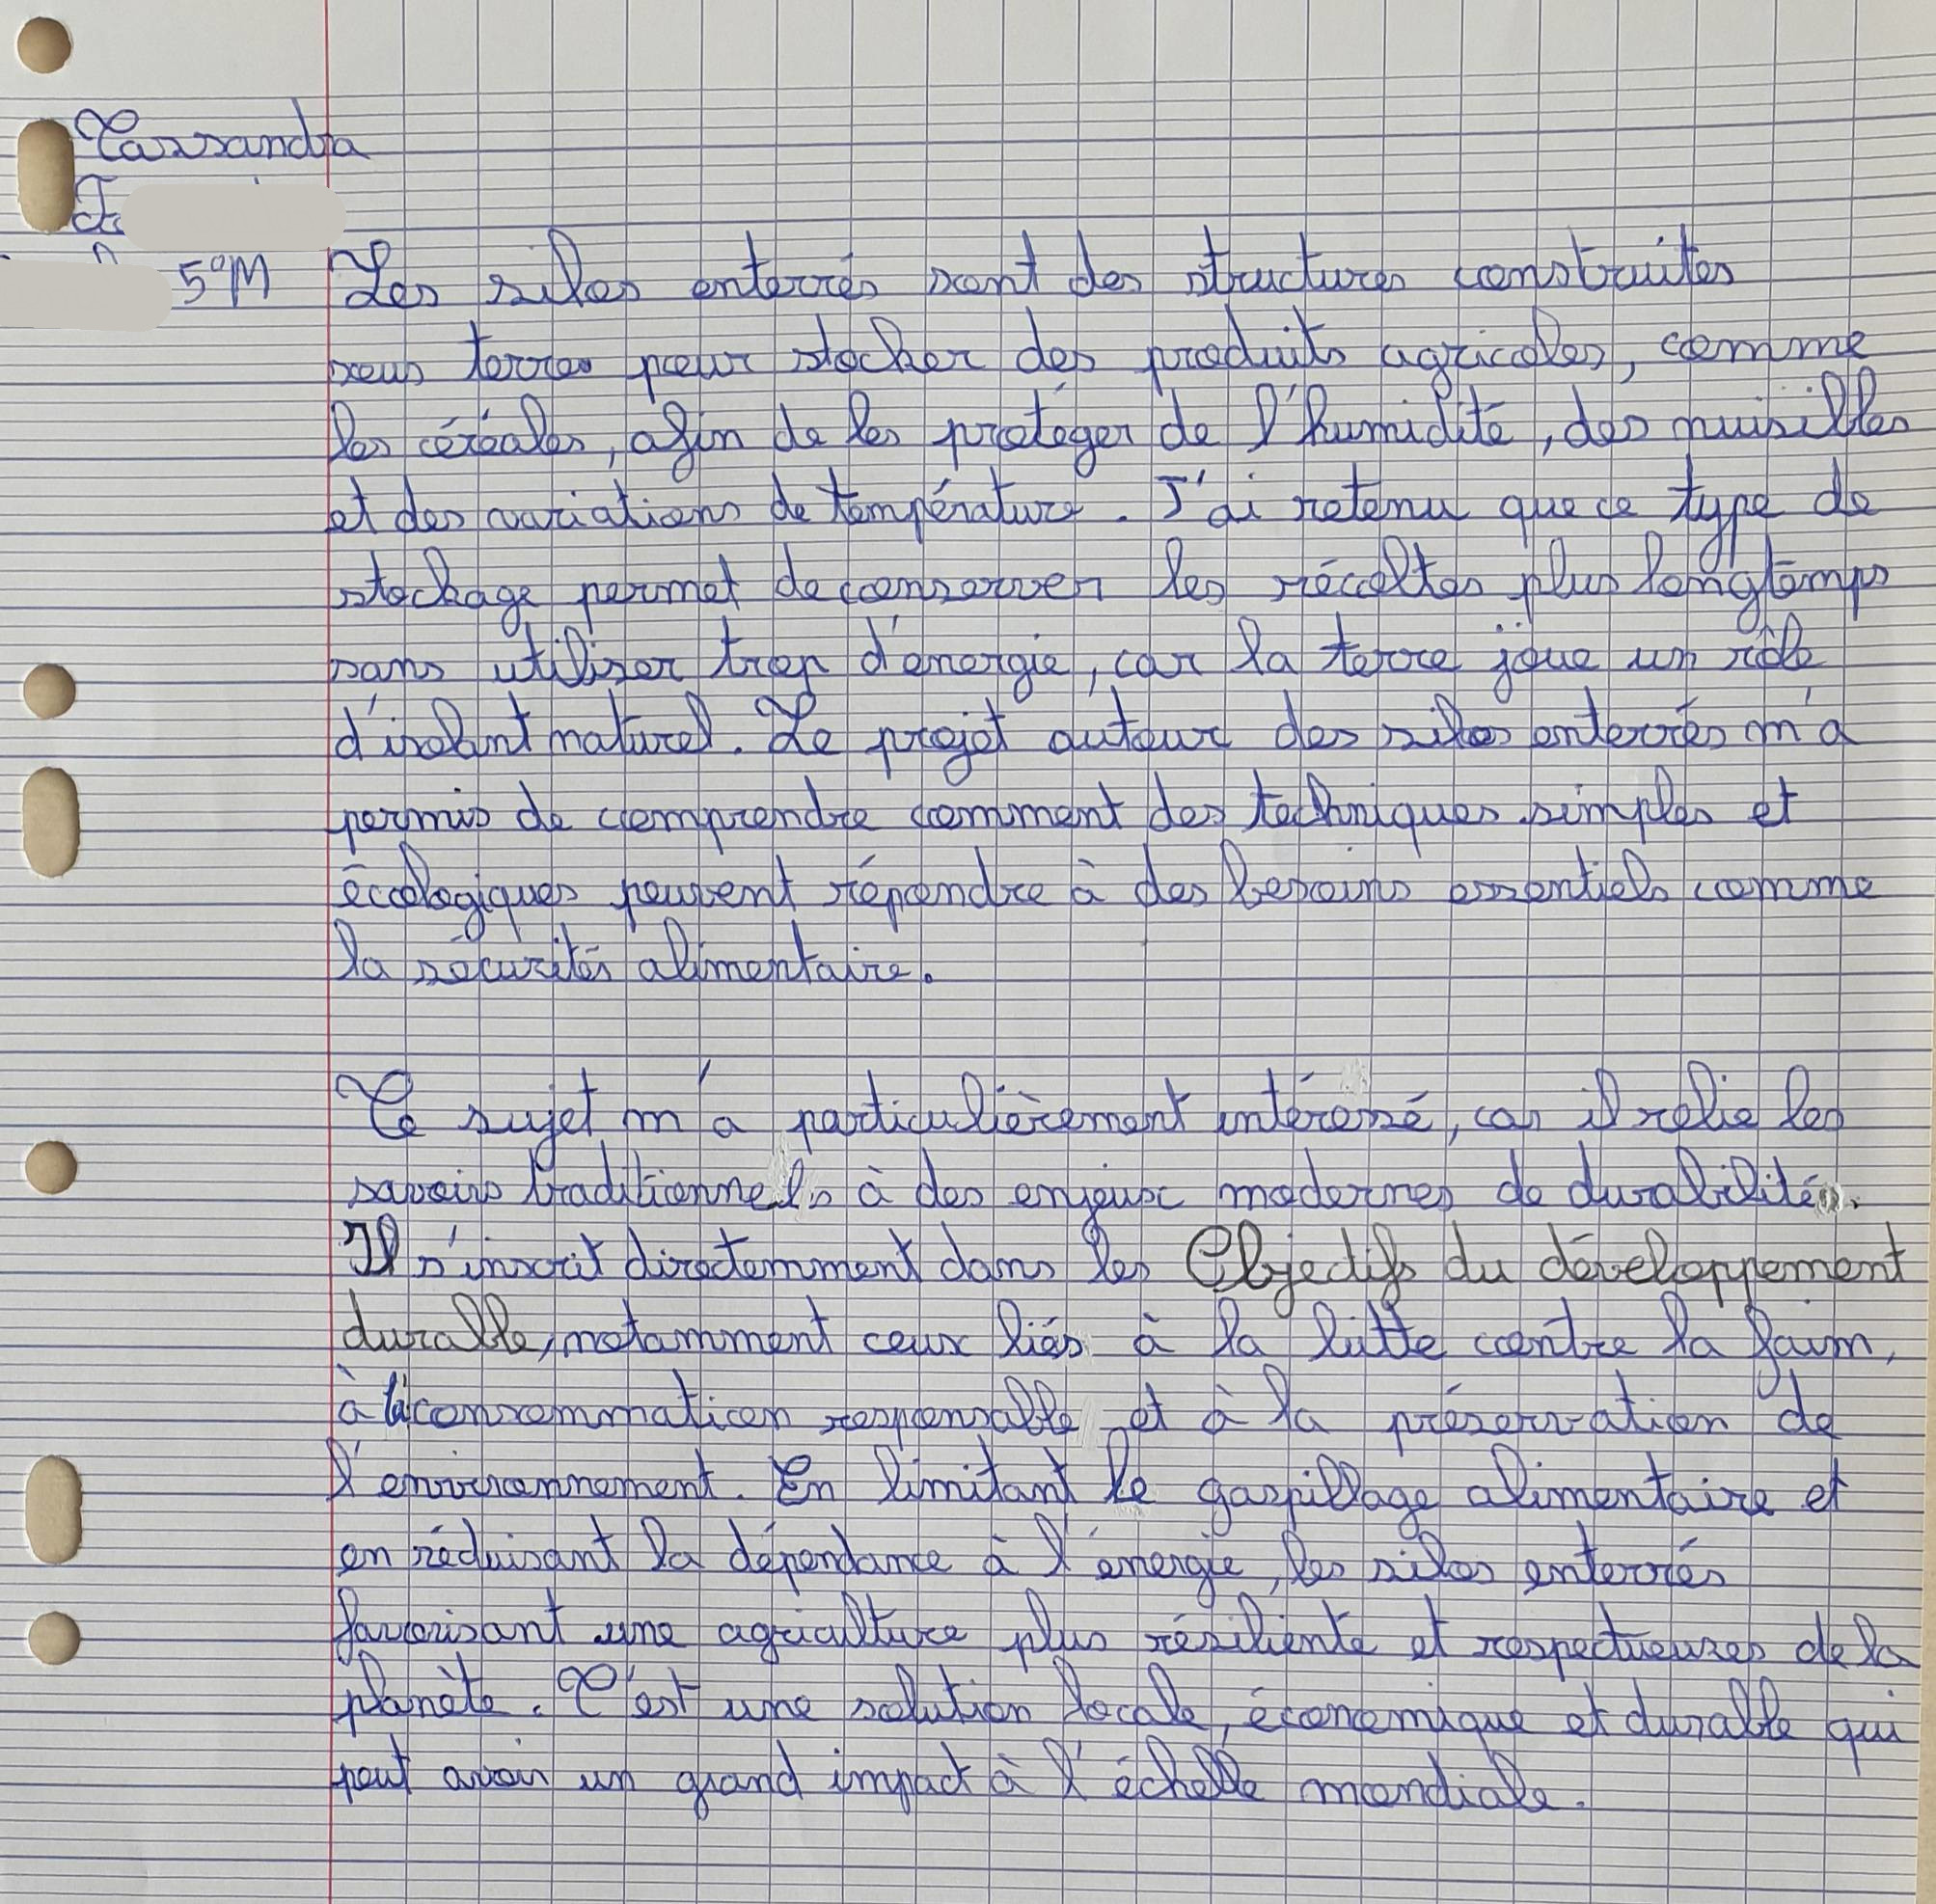 Cassandra
F
5°M
Les silos enterrés sont des structures construites
sous terres pour stocker des produits agricoles, comme
les céréales, afin de les protéger de l'humidité, des nuisibles
et des variations de température. J'ai retenu que ce type de
stockage permet de conserver les récoltes plus longtemps
sans utiliser trop d'énergie, car la terre joue un rôle
d'isolant naturel. Le projet autour des silos enterrés m'a
permis de comprendre comment des techniques simples et
écologiques peuvent répondre à des besoins essentiels comme
la sécurités alimentaire.
Ce sujet m'a particulièrement intéressé, car il relie les
savoirs traditionnels à des enjeux modernes de durabilité.
Il s'inscrit directemment dans les Objectifs du développement
durable, notamment ceux liés à la lutte contre la faim,
à la consommation responsable et à la préservation de
l'environnement. En limitant le gaspillage alimentaire et
en réduisant la dépendance à l'énergie, les silos enterrés
favorisant une agriculture plus résiliente et respectueuses de la
planète. C'est une solution locale, économique et durable qui
peut avoir un grand impact à l'échelle mondiale.